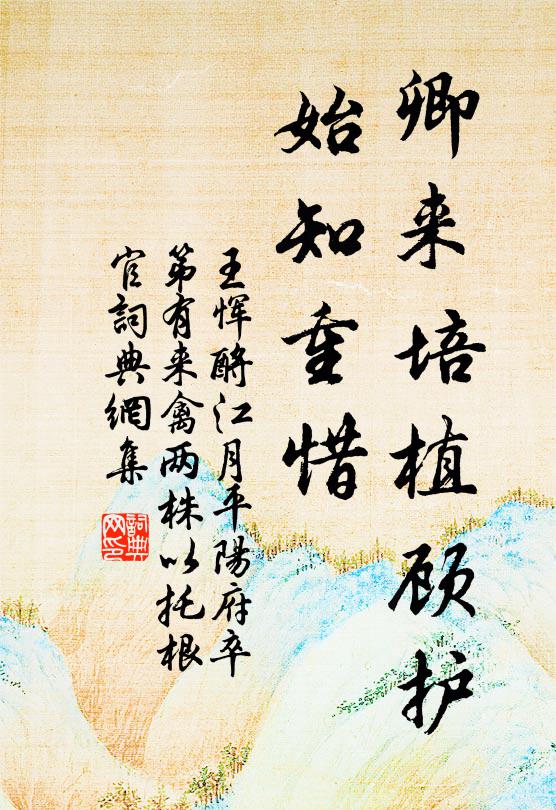 卿来培植顾护
始知重惜
王恽酹江月平陽府卒
第有来禽两株以托根
官詞典網集
詞典网印